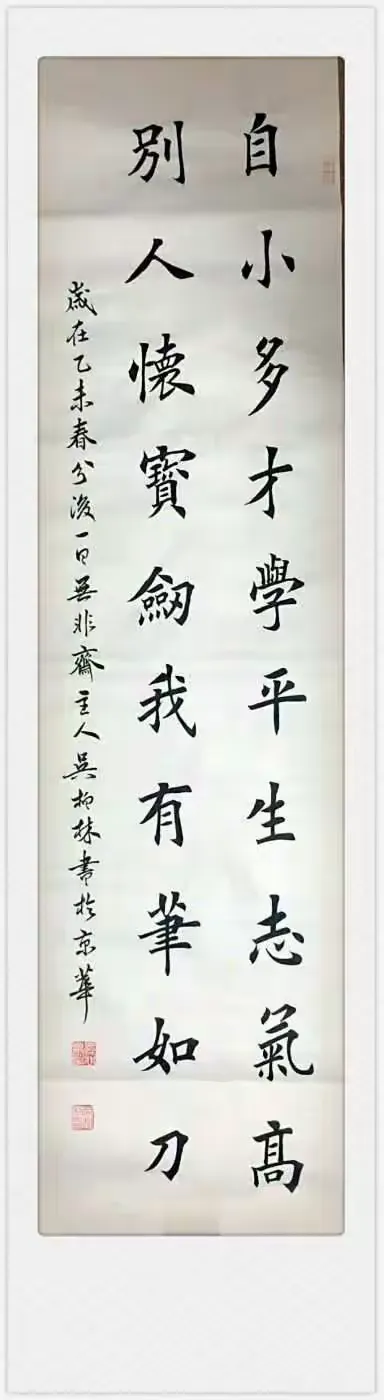 自小多才學平生志氣高
別人懷寶劒我有筆如刀
歲在乙未春分後一日無非齋主人吳柏林書於京華